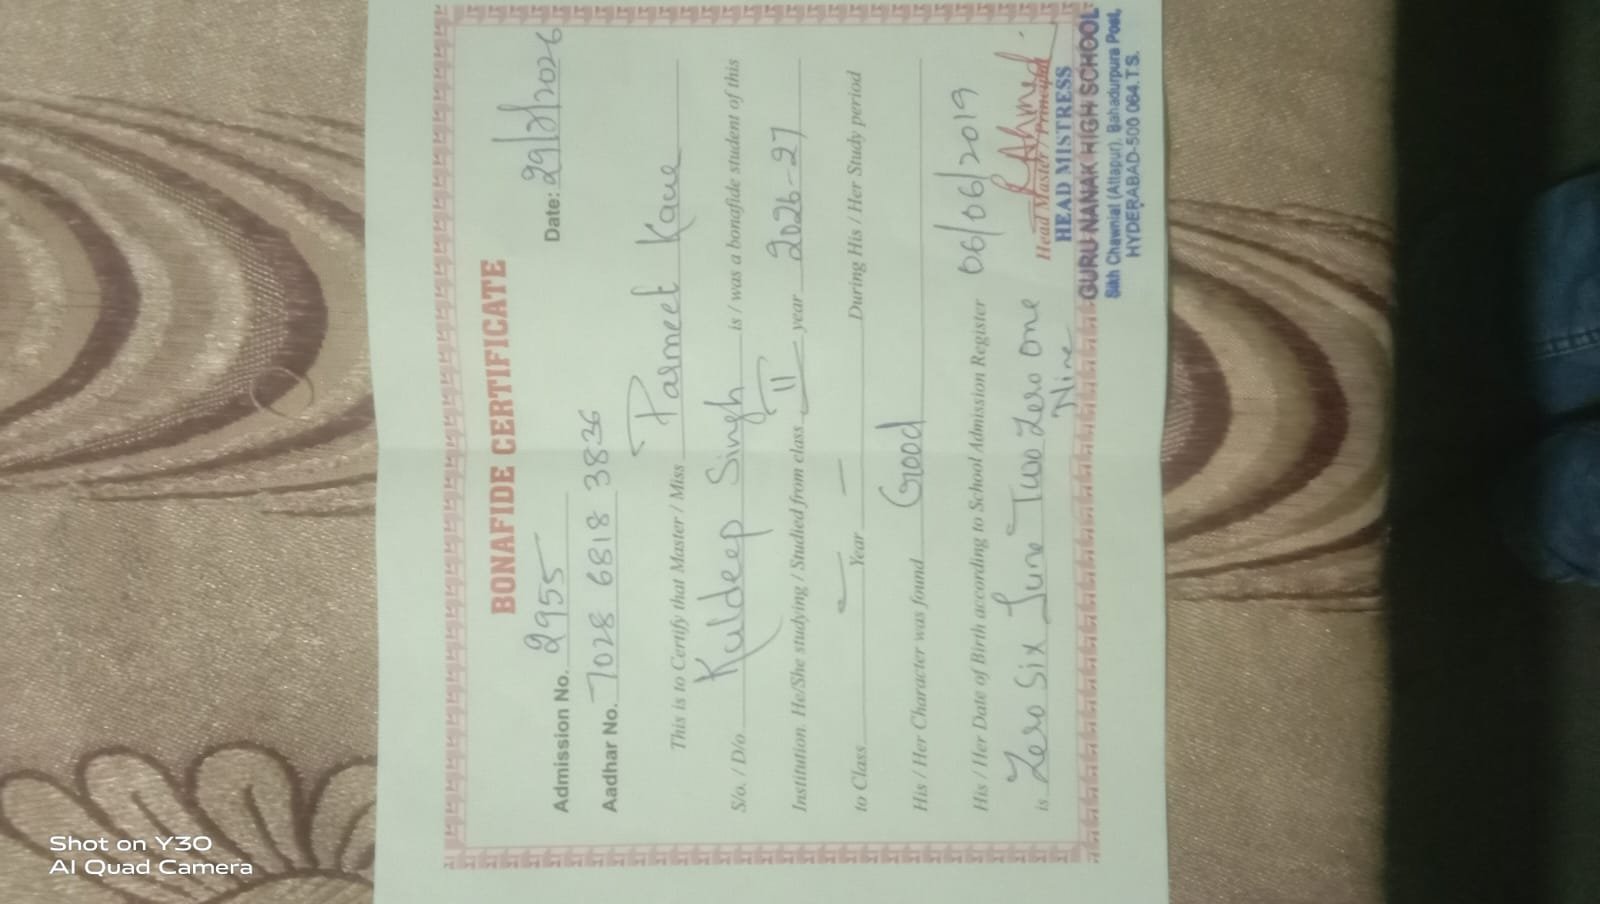 BONAFIDE CERTIFICATE
Admission No. 2955
Date: 29/2/2026
Aadhar No. 7028 6818 3836
This is to Certify that Master / Miss Parmeet Kaur
S/o. / D/o. Kuldeep Singh is / was a bonafide student of this
Institution. He/She studying / Studied from class II year 2026-27
to Class — Year — During His / Her Study period
His / Her Character was found Good
His / Her Date of Birth according to School Admission Register 06/06/2019
is Zero Six June Two Zero One
Nine
Head Master / Principal
HEAD MISTRESS
GURU NANAK HIGH SCHOOL
Sikh Chawniat (Attapur), Bahadurpura Post,
HYDERABAD-500 064.T.S.
Shot on Y30
AI Quad Camera